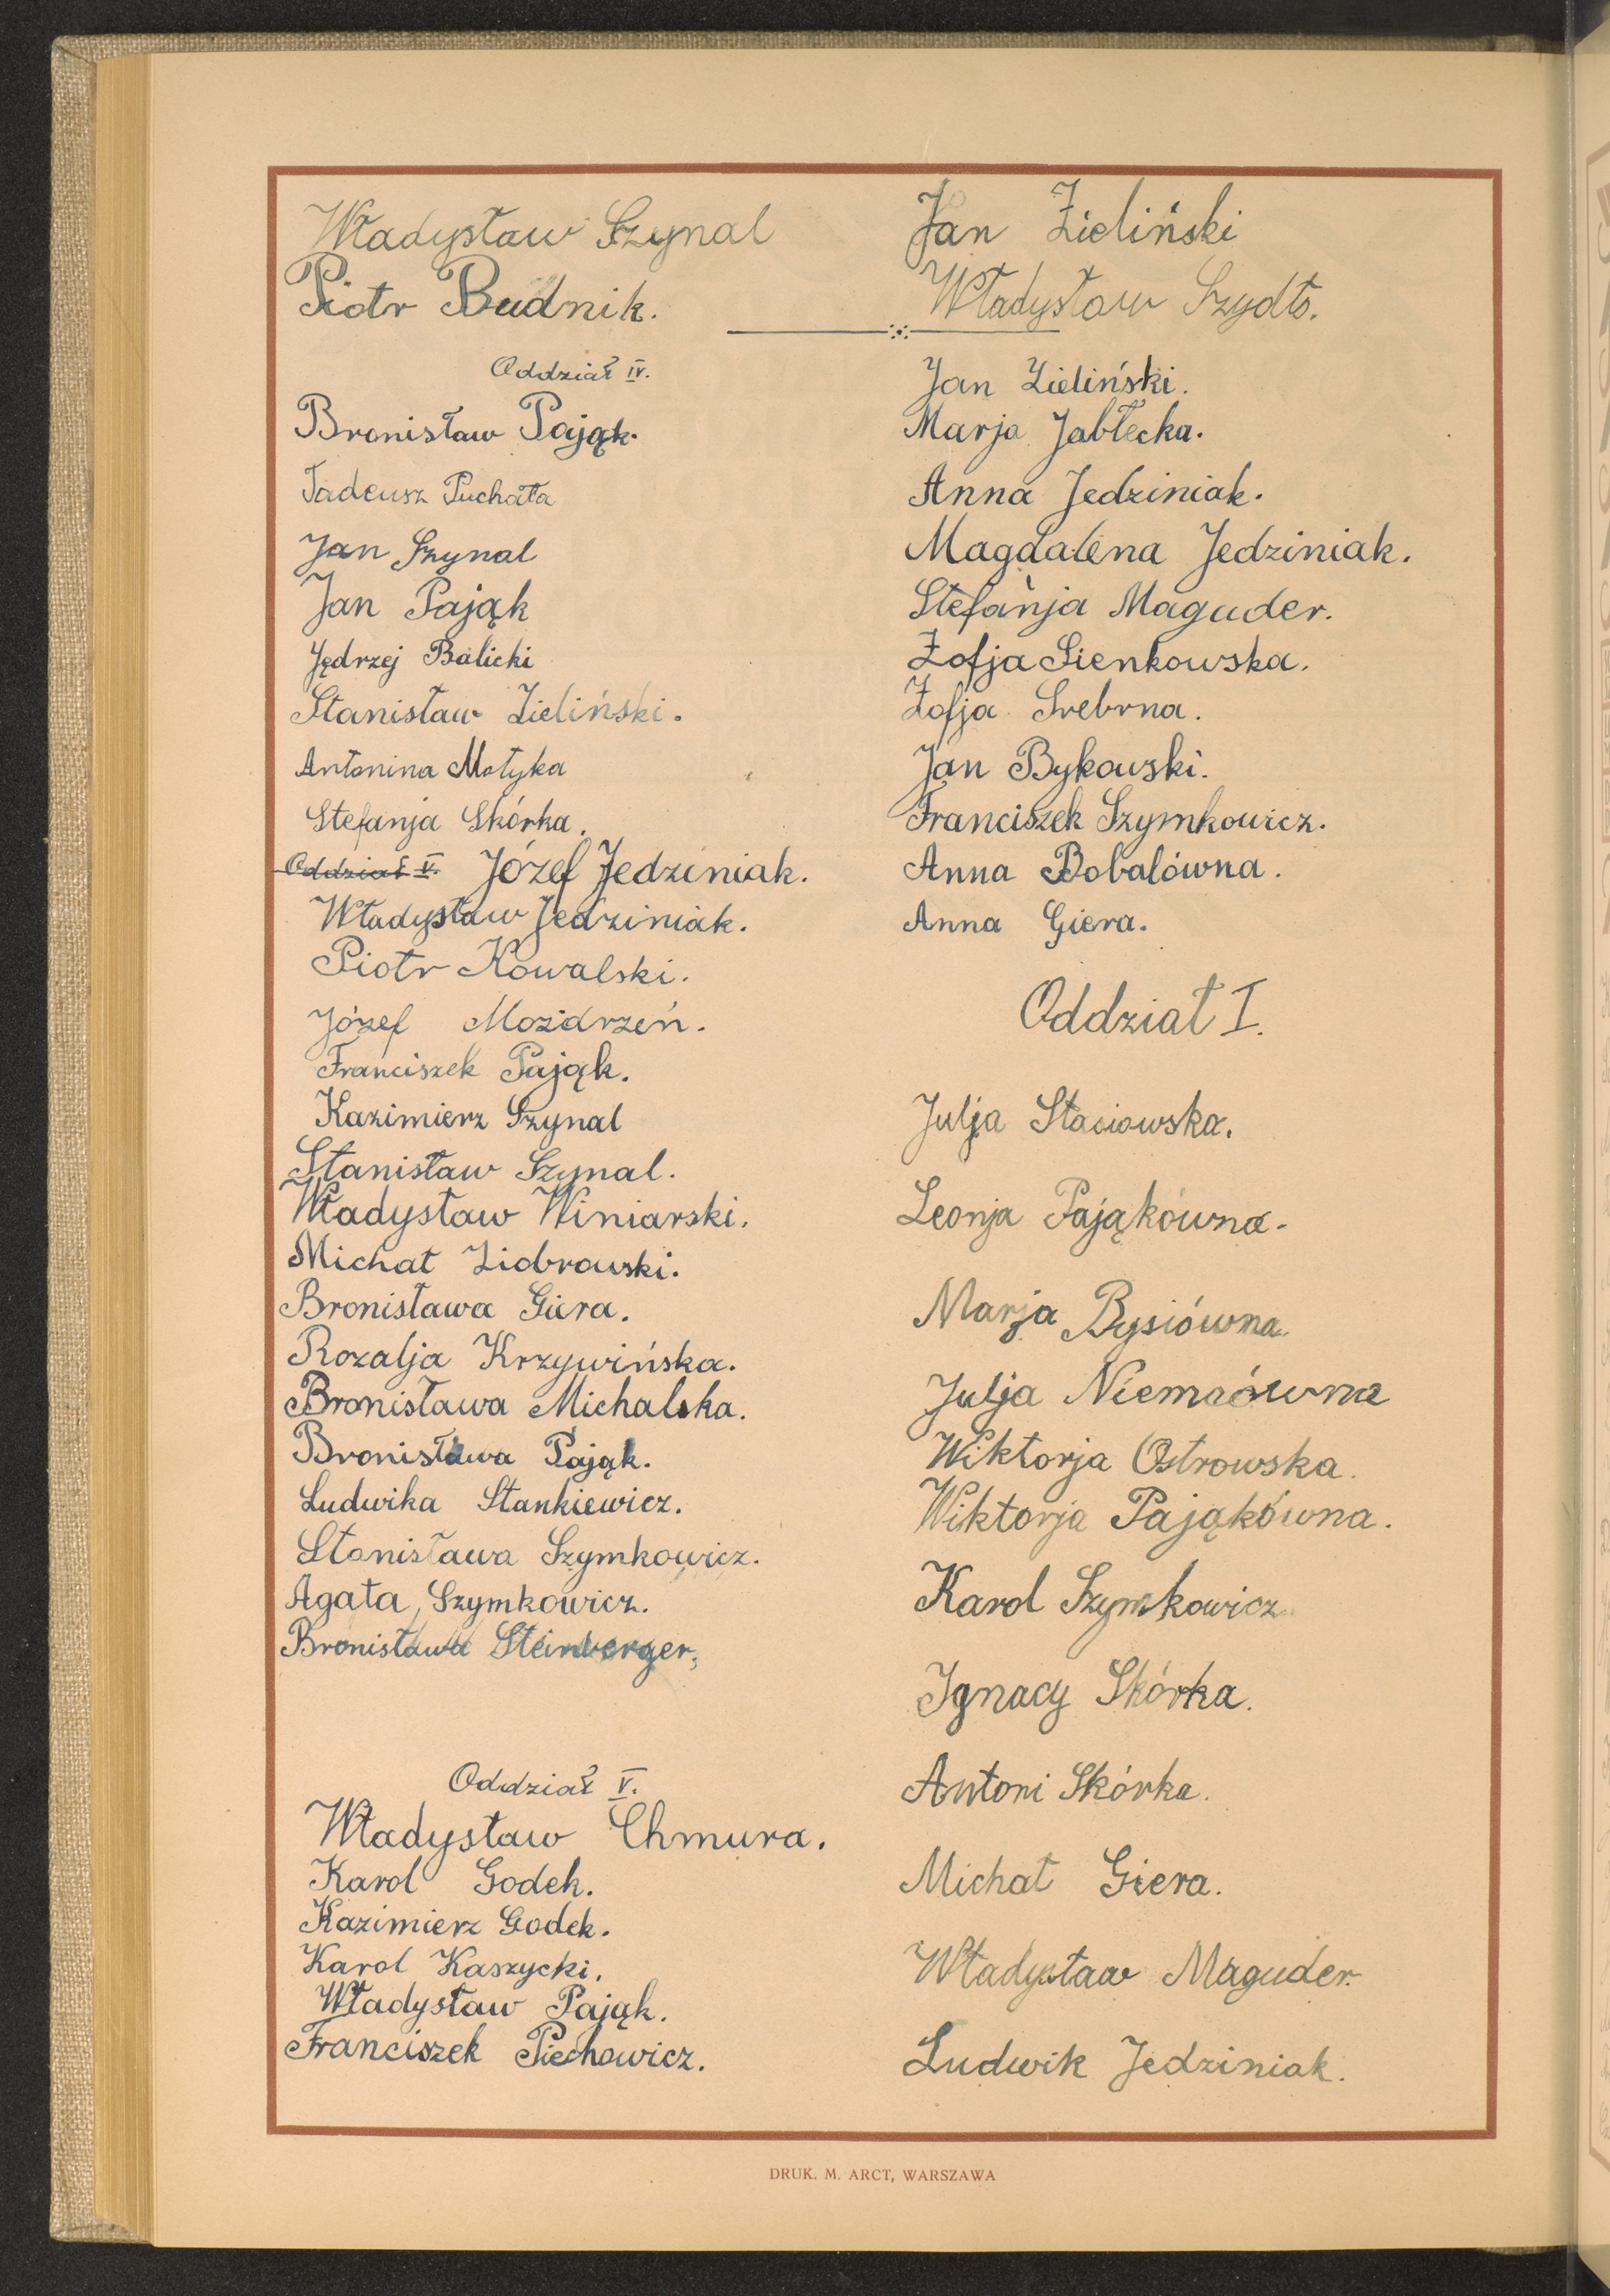 Władysław Szynal
Piotr Budnik.
Jan Zieliński
Władysław Szydło.
Oddział IV.
Bronisław Pająk.
Tadeusz Puchała
Jan Szynal
Jan Pająk
Jędrzej Balicki
Stanisław Zieliński.
Antonina Motyka
Stefanja Skórka.
Oddział V. Józef Jedziniak.
Władysław Jedziniak.
Piotr Kowalski.
Józef Moździeń.
Franciszek Pająk.
Kazimierz Szynal
Stanisław Szynal.
Władysław Winiarski.
Michał Ziobrowski.
Bronisława Giera.
Rozalja Krzywińska.
Bronisława Michalska.
Bronisława Pająk.
Ludwika Stankiewicz.
Stanisława Szymkowicz.
Agata Szymkowicz.
Bronisława Steinberger,
Oddział V.
Władysław Chmura.
Karol Godek.
Kazimierz Godek.
Karol Kaszycki.
Władysław Pająk.
Franciszek Piechowicz.
Jan Zieliński.
Marja Jabłecka.
Anna Jedziniak.
Magdalena Jedziniak.
Stefanja Maguder.
Zofja Sienkowska.
Zofja Srebrna.
Jan Bykowski.
Franciszek Szymkowicz.
Anna Bobalówna.
Anna Giera.
Oddział I.
Julja Stasiowska.
Leonja Pająkówna.
Marja Bysiówna.
Julja
Wiktorja Ostrowska.
Wiktorja Pająkówna.
Karol Szymkowicz
Ignacy Skórka.
Antoni Skórka.
Michał Giera.
Władysław Maguder.
Ludwik Jedziniak.
DRUK. M. ARCT, WARSZAWA